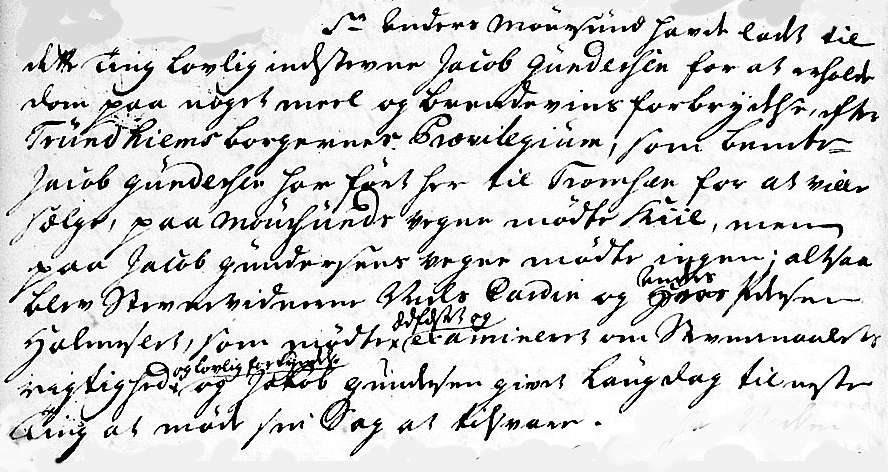 Sr Anders Moursund havde ladt til
dette Ting lovlig indstevne Jacob Gundersen for at erholde
dom paa noget meel og brendevins forbrydelse, efter
Trundhiems borgernes Privilegium, som bemte
Jacob Gundersen har fört her til Tromsöe for at ville
sælge, paa Mourssunds vegne mödte Kiil, men
paa Jacob Gundersens vegne mödte ingen; altsaa
blev Stevnevidnerne Niels og Anders Pedersen
Holmeset, som mödte, Edfæstet og examineret om Stevnemaalets
rigtighed og lovlig forkyndelse og Jakob Gundersen givet Laugdag til neste
Ting at möde sin Sag at tilsvare.